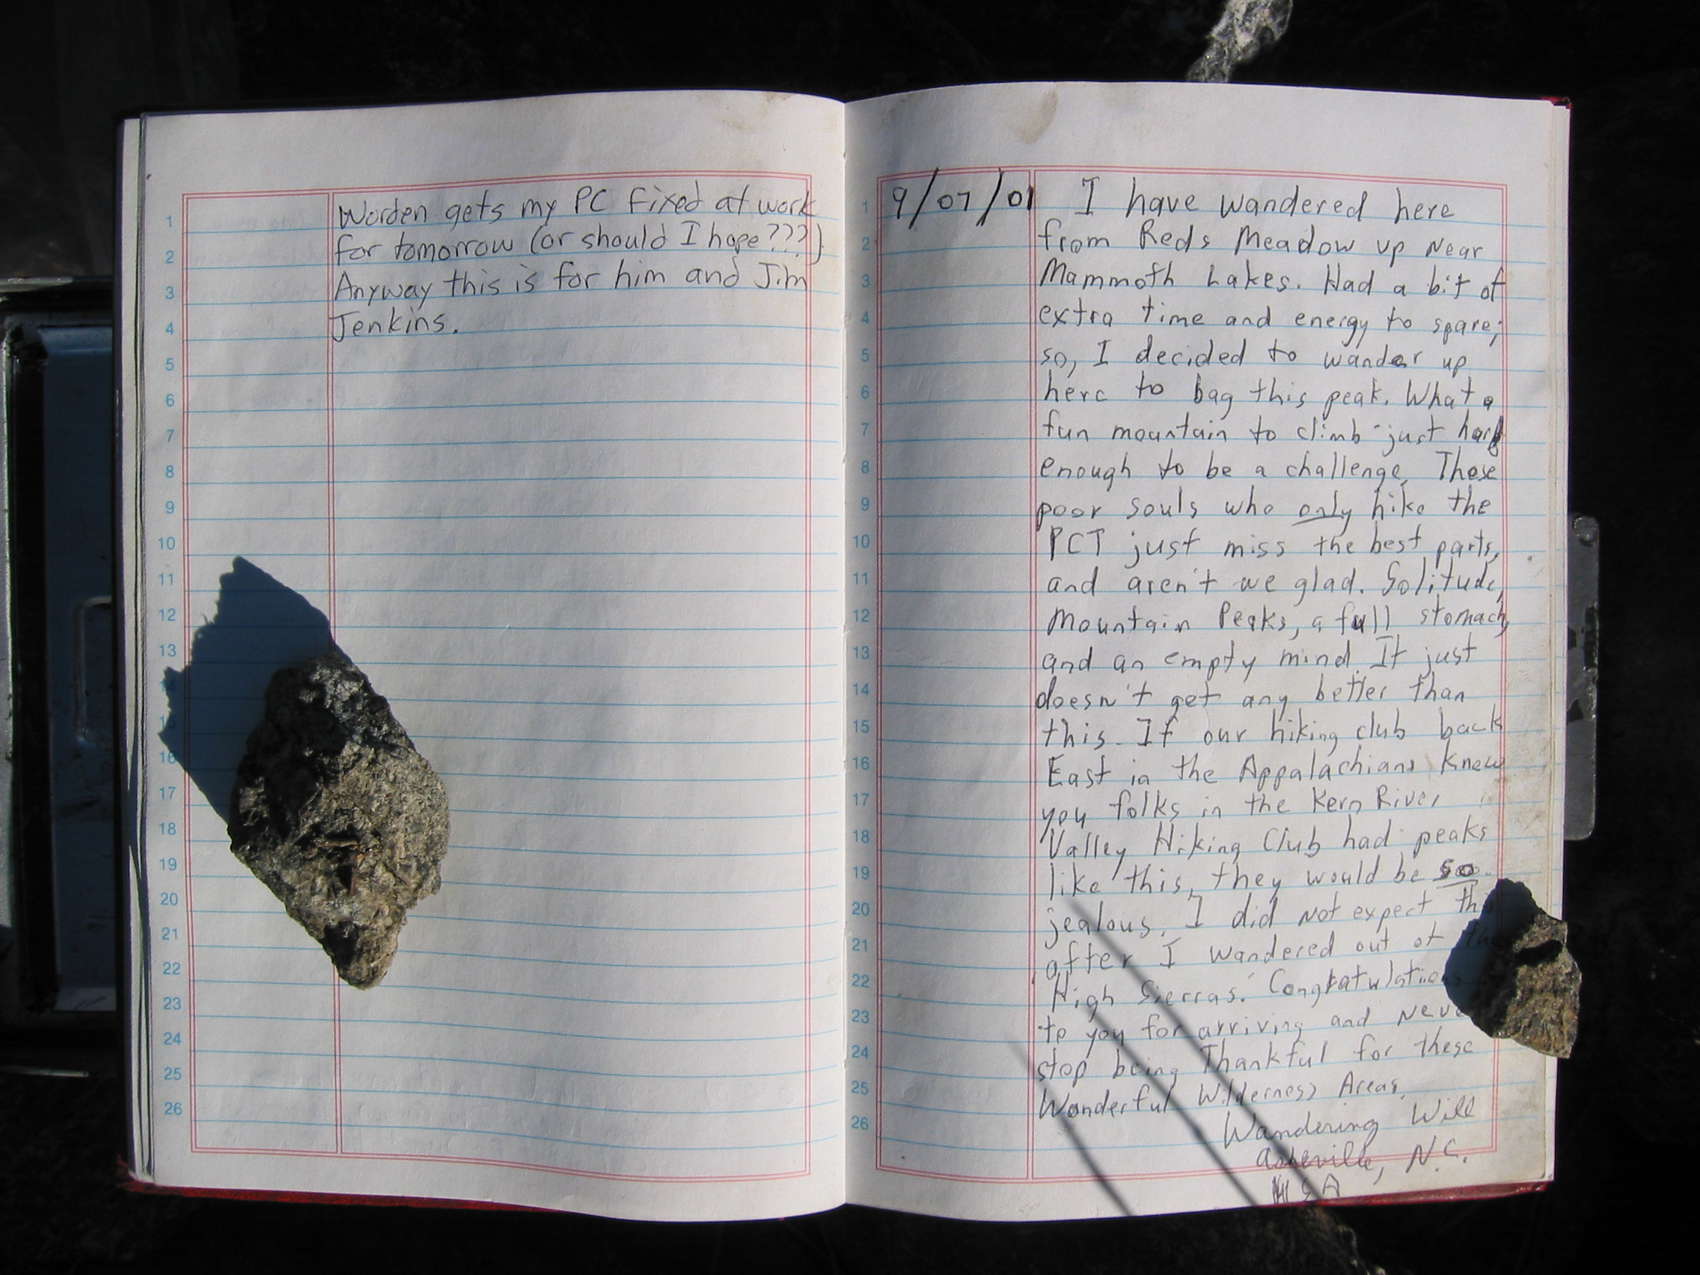 Worden gets my PC fixed at work
for tomorrow (or should I hope???)
Anyway this is for him and Jim
Jenkins.
1
2
3
4
5
6
7
8
9
10
11
12
13
16
17
18
19
20
21
22
23
24
25
26
9/07/01 I have wandered here
from Reds Meadow up Near
Mammoth Lakes. Had a bit of
extra time and energy to spare;
so, I decided to wander up
here to bag this peak. What a
fun mountain to climb - just hard
enough to be a challenge. Those
poor souls who only hike the
PCT just miss the best parts,
and aren't we glad. Solitude,
Mountain Peaks, a full stomach,
and an empty mind. It just
doesn't get any better than
this. If our hiking club back
East in the Appalachians knew
you folks in the Kern River
Valley Hiking Club had peaks
like this, they would be so
jealous. I did not expect
after I wandered out of the
High Sierras. Congratulations
to you for arriving and
stop being Thankful for these
Wonderful Wilderness Areas.
Wandering Will
Asheville, N.C.
1
2
3
4
5
6
7
8
9
10
11
12
13
14
15
16
17
18
19
20
21
22
23
24
25
26